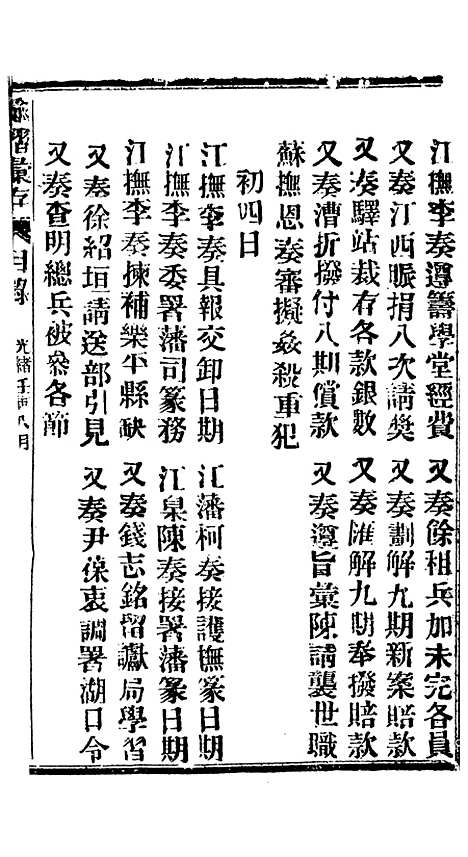 江撫李奏遵籌學堂經費 又奏餘租兵加未完各員
又奏江西賑捐八次請獎 又奏劃解九期新案賠款
又奏驛站裁存各款銀數 又奏匯解九期奉撥賠款
又奏漕折撥付八期償款 又奏遵旨彙陳請襲世職
蘇撫恩奏審擬姦殺重犯
初四日
江撫李奏具報交卸日期 江藩柯奏接護撫篆日期
江撫李奏委署藩司篆務 江臬陳奏接署藩篆日期
江撫李奏揀補樂平縣缺 又奏錢志銘留讞局學習
又奏徐紹垣請送部引見 又奏尹葆衷調署湖口令
又奏查明總兵被參各節
諭摺彙存 目錄 光緒壬寅八月